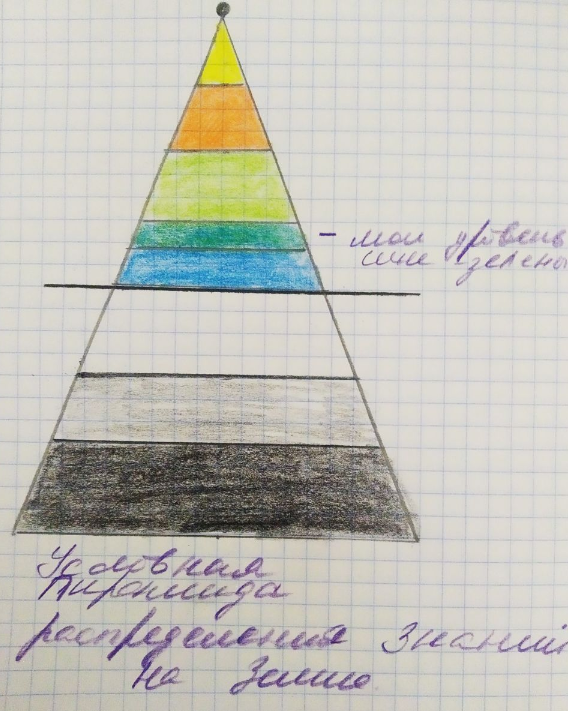 - мой уровень
сине зелены
Условная
Пирамида
распределения Знаний
на Земле